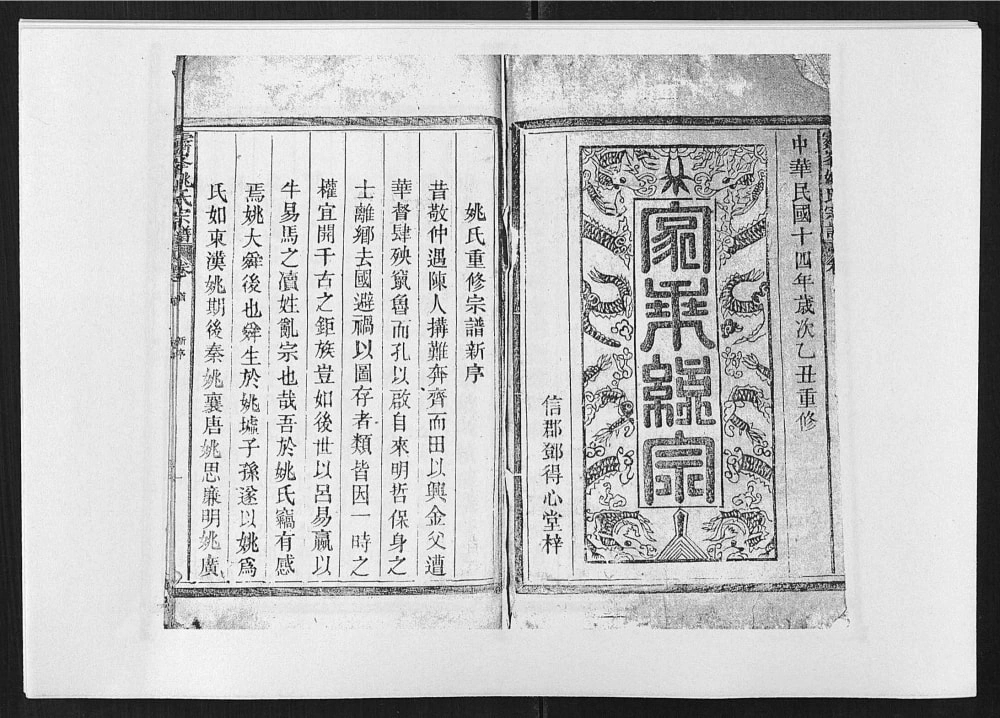 中華民國十四年歲次乙丑重修
家乘綿宗
信郡鄧得心堂梓
姚氏重修宗譜新序
昔敬仲遇陳人搆難奔齊而田以興金父遭
華督肆殃竄魯而孔以啟自來明哲保身之
士離鄉去國避禍以圖存者類皆因一時之
權宜開千古之鉅族豈如後世以呂易嬴以
牛易馬之凟姓亂宗也哉吾於姚氏竊有感
焉姚大舜後也舜生於姚墟子孫遂以姚爲
氏如東漢姚期後秦姚襄唐姚思廉明姚廣
姚氏宗譜
卷
新序